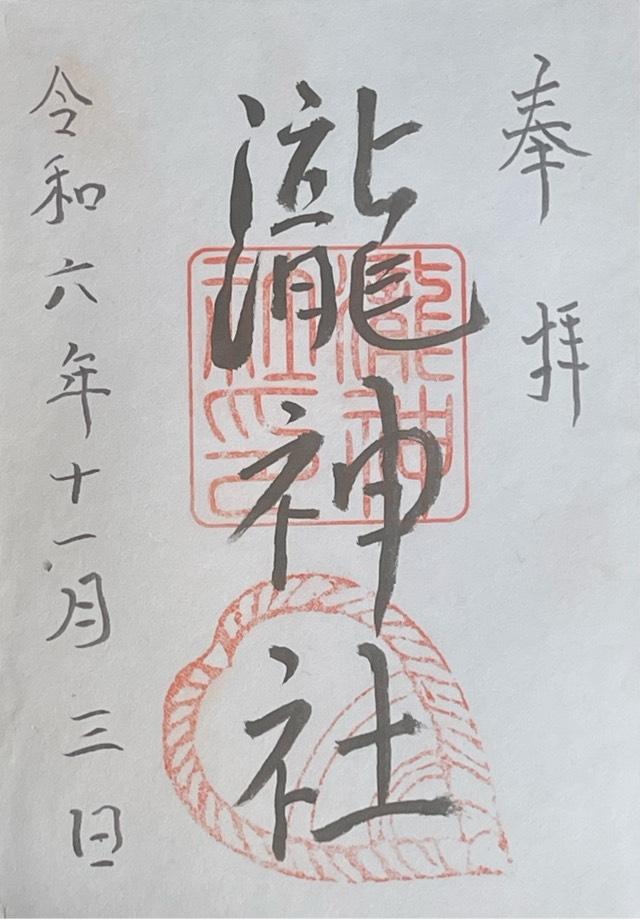 奉拝
瀧神社
瀧神社印
令和六年十一月三日